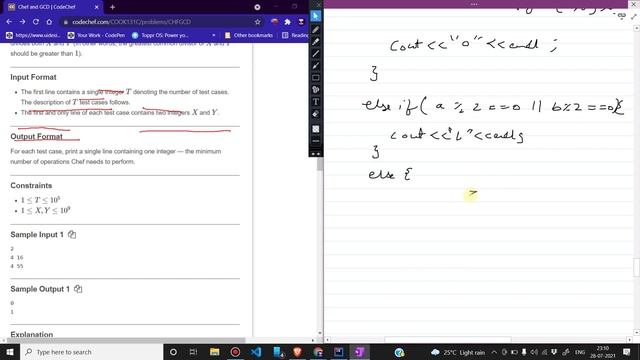 Chef and GCD | CodeChef
codechef.com/COOK131C/problems/CHFGCD
WhatsApp
Web - CodePen
Toppr OS: Power yo...
Other Bookmarks
Reading list
should be greater than 1).
Input Format
• The first line contains a single integer T denoting the number of test cases.
The description of T test cases follows.
• The first and only line of each test case contains two integers X and Y.
Output Format
For each test case, print a single line containing one integer — the minimum
number of operations Chef needs to perform.
Constraints
• 1 ≤ T ≤ 10^5
• 1 ≤ X, Y ≤ 10^9
Sample Input 1
2
4 16
4 55
Sample Output 1
0
1
Explanation
cout<<"0"<<endl ;
}
else if( a % 2 ==0 || b%2 ==0){
cout<<"1"<<endl;
}
else {
Type here to search
25°C Light rain
ENG
23:10
28-07-2021